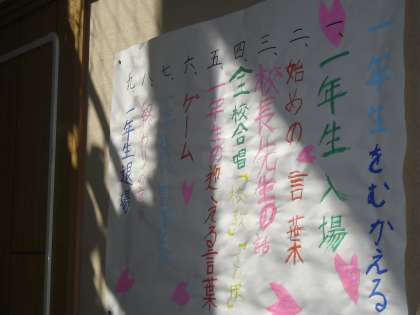 一年生をむかえる
一、一年生入場
二、始めの言葉
三、校長先生の話
四、全校合唱「校歌」
五、一年生の迎える言葉
六、ゲーム
七、
八、終わりの
九、一年生退場